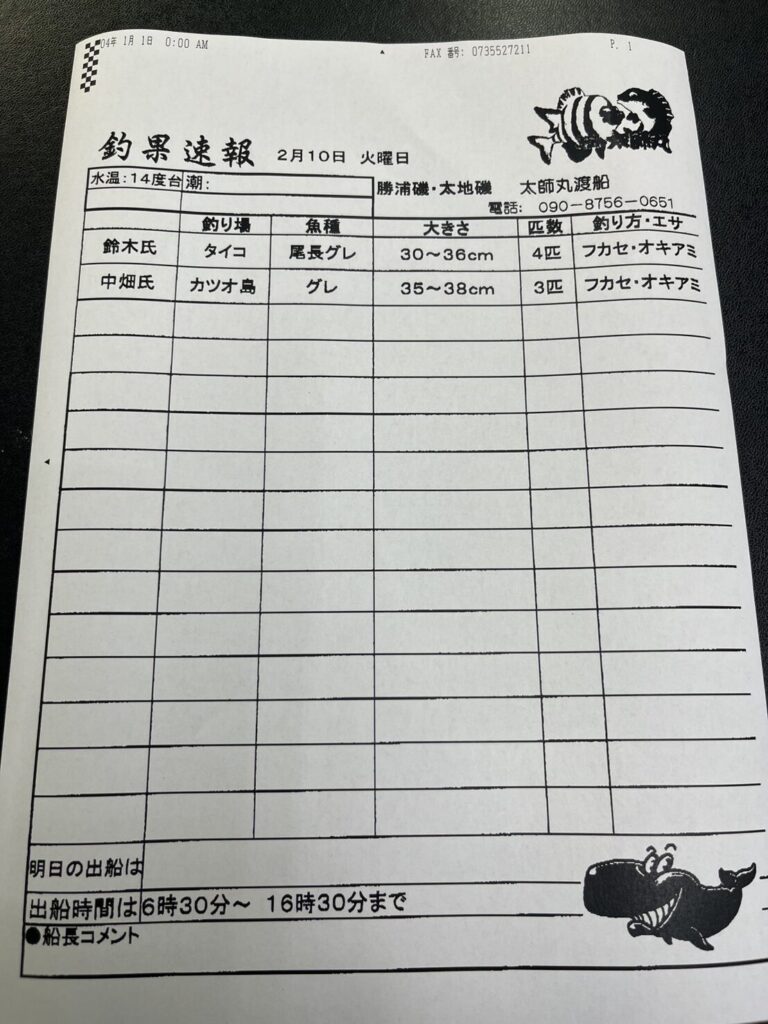 04年 1月 1日 0:00 AM FAX 番号: 0735527211 P. 1
釣果速報 2月10日 火曜日
水温:14度台 潮: 勝浦磯・太地磯 太師丸渡船
電話: 090-8756-0651
釣り場 魚種 大きさ 匹数 釣り方・エサ
鈴木氏 タイコ 尾長グレ 30～36cm 4匹 フカセ・オキアミ
中畑氏 カツオ島 グレ 35～38cm 3匹 フカセ・オキアミ
明日の出船は
出船時間は 6時30分～ 16時30分まで
●船長コメント